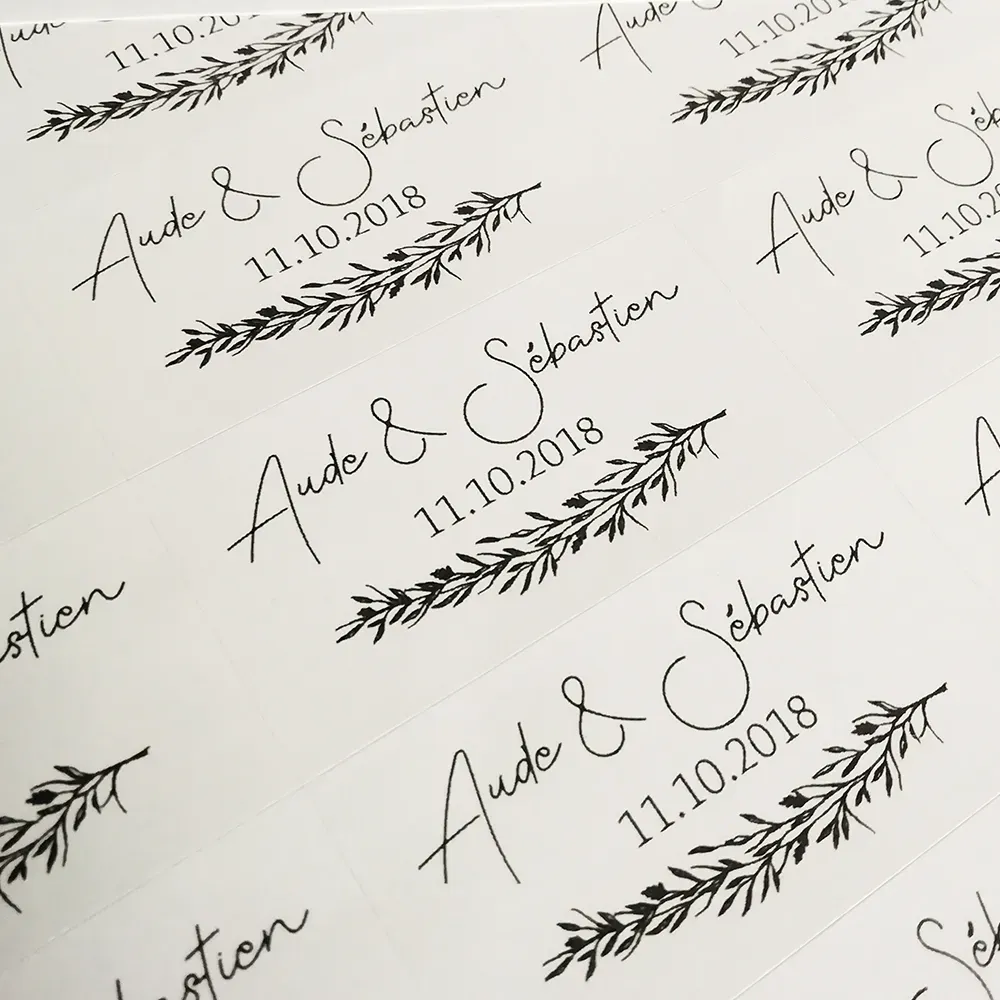 Aude
11.10.201
Aude & Sébastien
11.10.2018
Aude & Séb
11.10.2
Aude & Sébastien
11.10.2018
Aude & Sébastien
11.10.2018